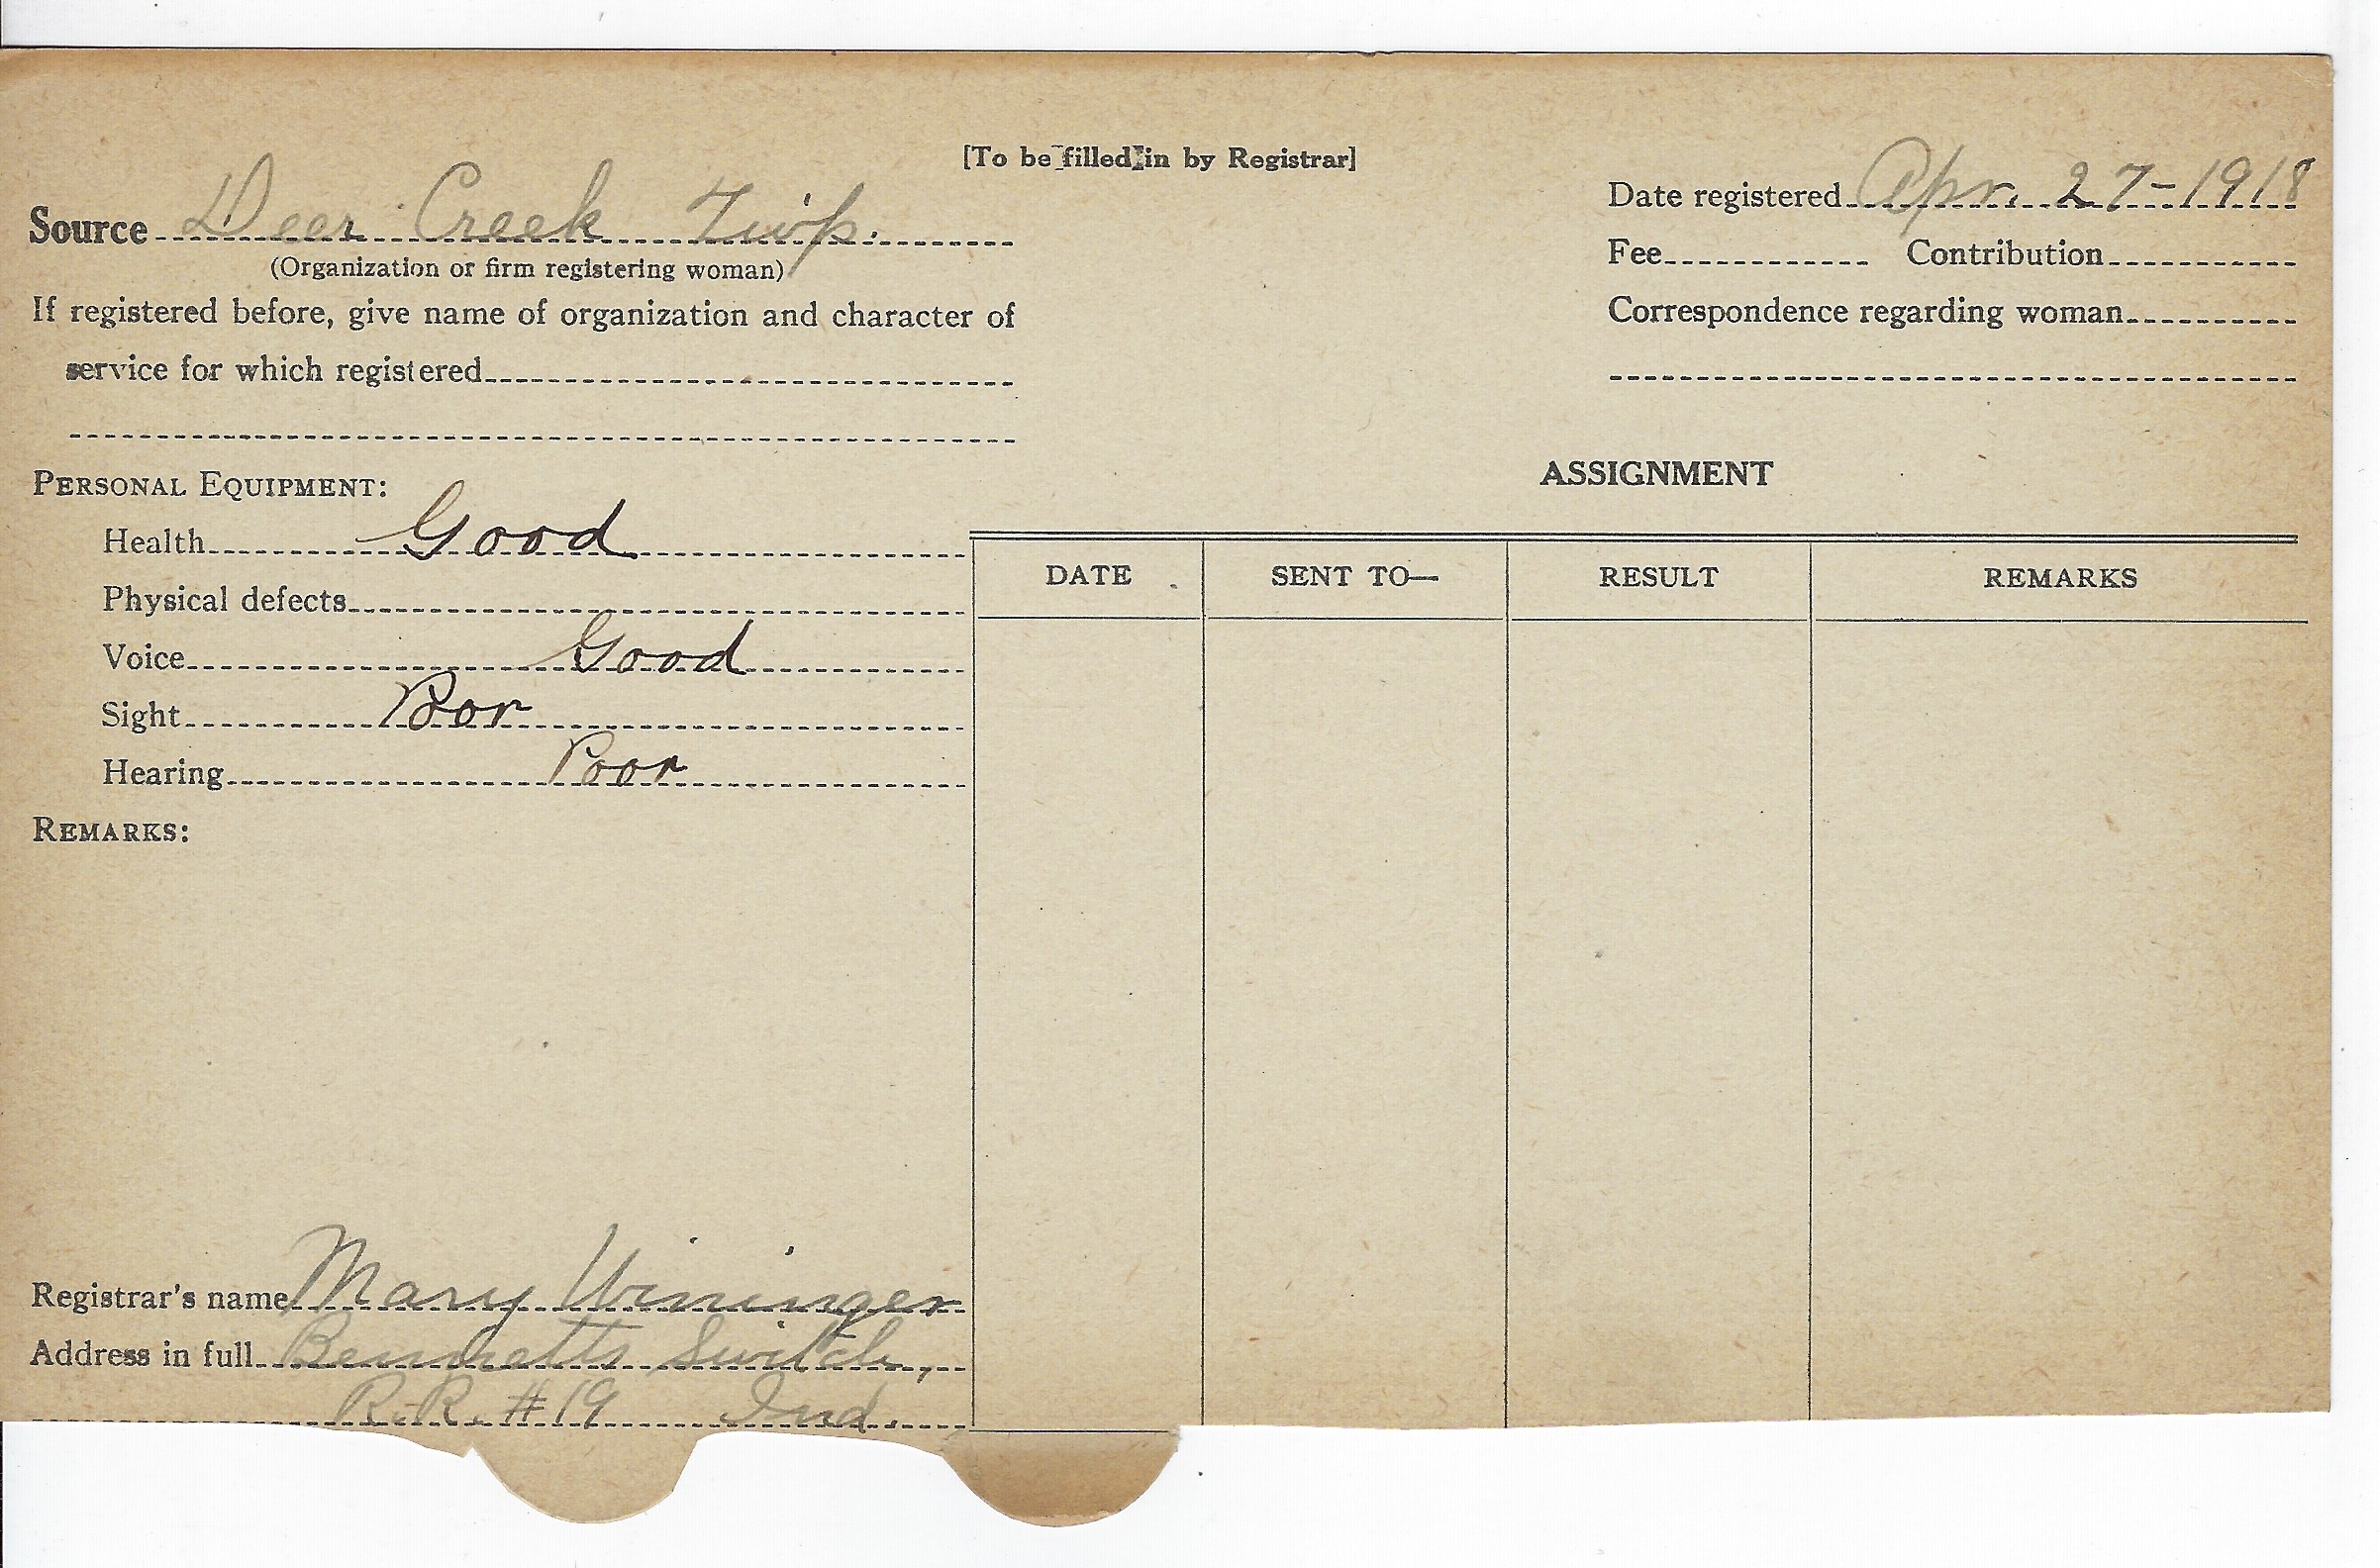 [To be filled in by Registrar]
Source Deer Creek Twp.
(Organization or firm registering woman)
If registered before, give name of organization and character of
service for which registered
Date registered Apr. 27-1918
Fee Contribution
Correspondence regarding woman
PERSONAL EQUIPMENT:
Health Good
Physical defects
Voice Good
Sight Poor
Hearing Poor
REMARKS:
ASSIGNMENT
DATE SENT TO— RESULT REMARKS
Registrar's name Mary Wininger
Address in full Bennetts Switch,
R.R. #19 Ind.